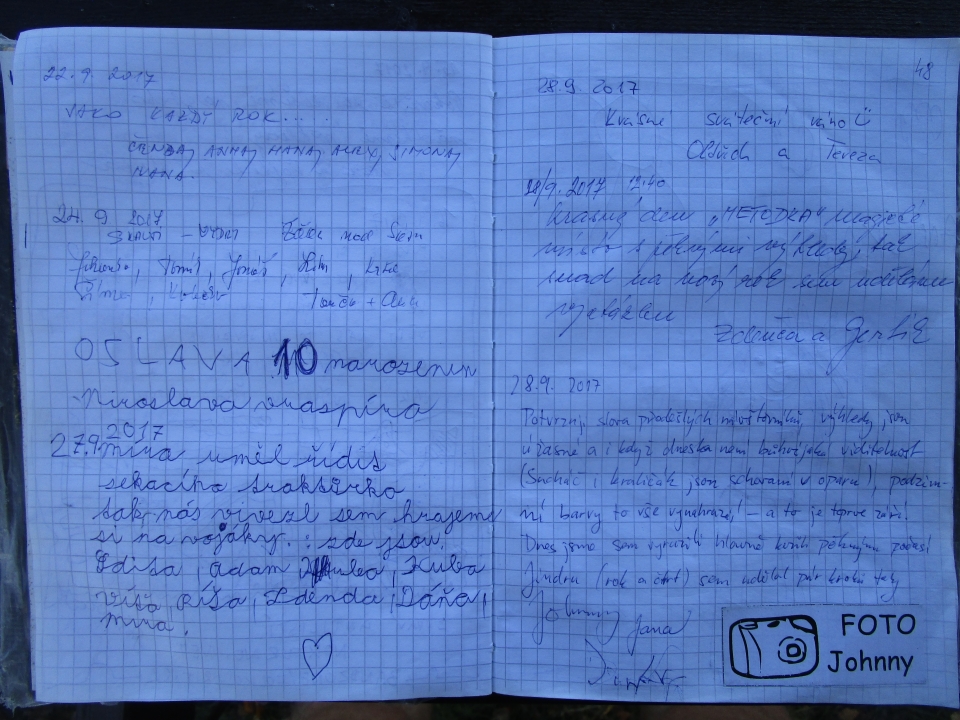 22.9.2017
JAKO KAŽDÝ ROK.....
ČENDA, ANNA, HANA, SIMONA,
IVANA.
24.9 2017
SKAUTI
Tomáš, Jonáš
OSLAVA 10 narozenin
Miroslava
2017
27.9 Míra uměl řídit
sekacího traktůrka
tak nás vivezl sem hrajeme
si na vojáky.: zde jsou.
Edita, Adam, Kuba
Víťa Ríša, Zdenda, Dáňa,
Míra.
48
28.9 2017
Krásné sváteční ráno Ü
Oldřich a Tereza
28/9. 2017 12:40
Krásný den „METODKA" magické
místo s pěknými výhledy, tak
snad na nový rok sem uděláme
Zdenča a
28.9. 2017
Potvrzuji slova předešlých návštěvníků, výhledy jsou
úžasné a i když dneska není bůhvíjaká viditelnost
(Sucháč i Kraličák jsou schovaní v oparu), podzim-
ní barvy to vše vynahrazují – a to je teprve září!
Dnes jsme sem vyrazili hlavně kvůli pěknému počasí
Jindru (rok a čtvrt) sem udělal pár kroků taky
Johnny Jana
FOTO
Johnny